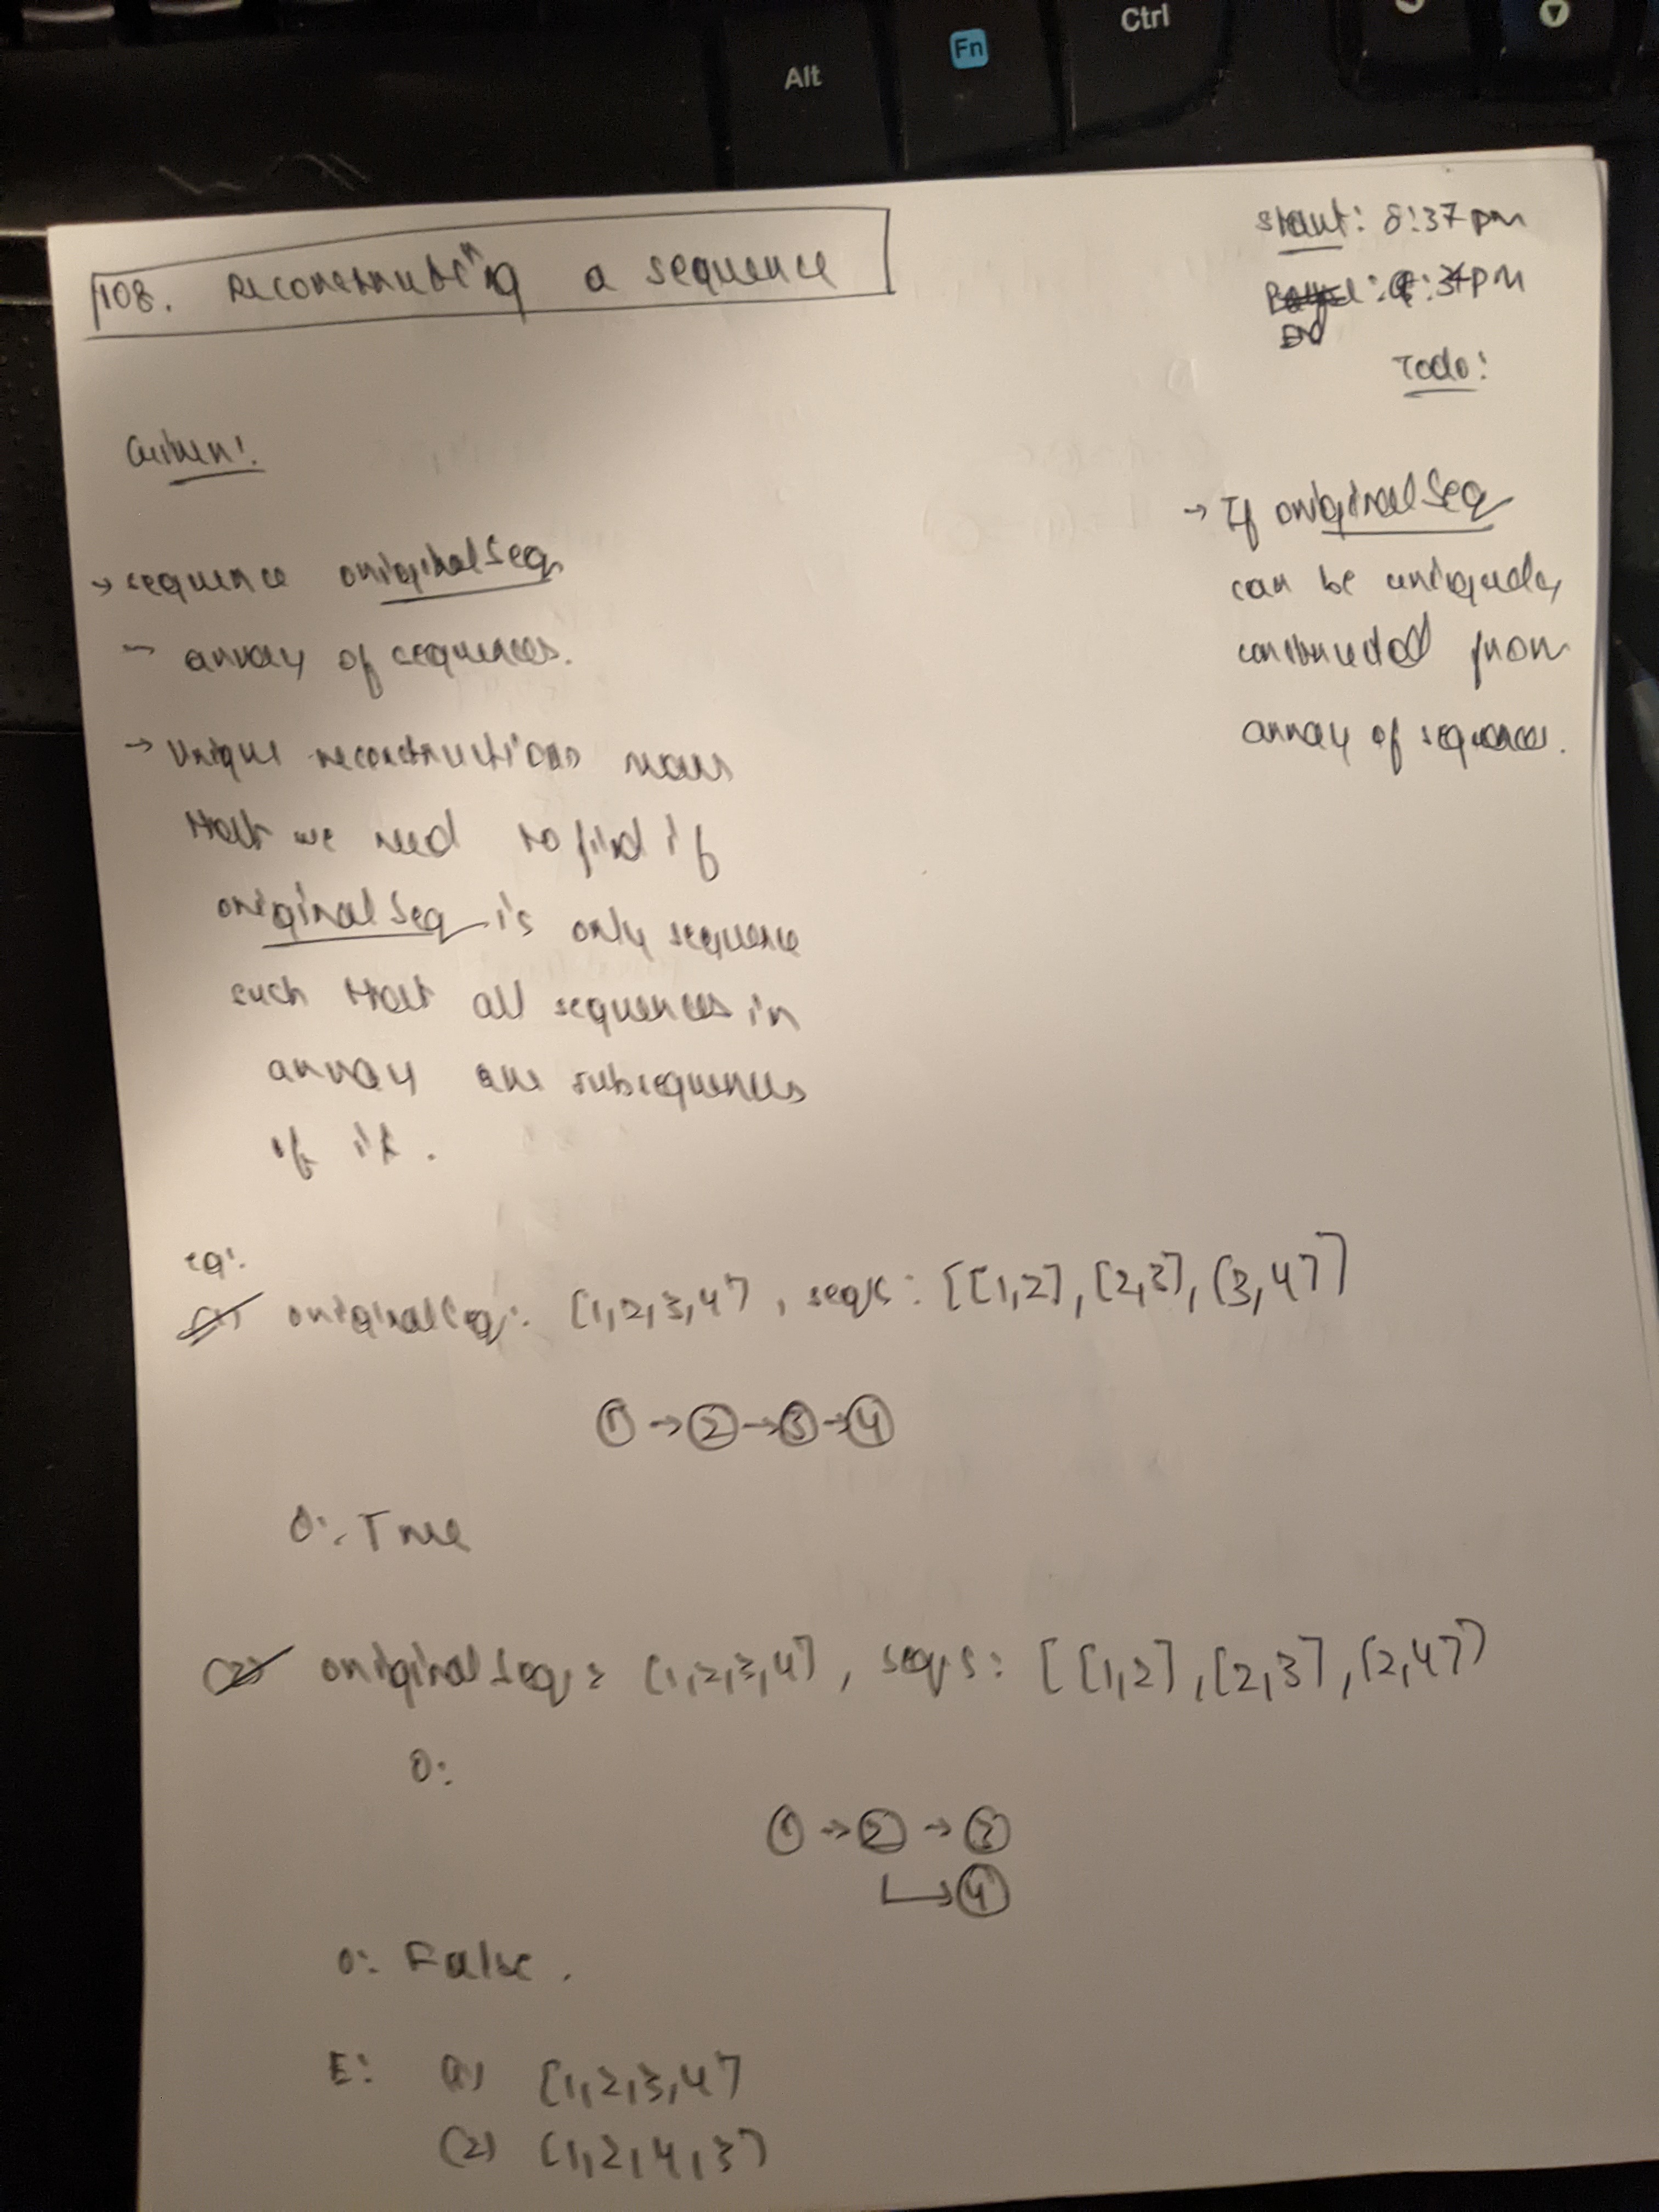 Alt
Fn
Ctrl
108. Reconstructing a sequence
Start: 8:37 pm
End
Todo:
Given:
→ sequence originalSeq
→ array of sequences.
→ Unique reconstructions means
that we need to find if
originalSeq is only sequence
such that all sequences in
array are subsequences
of it.
→ If originalSeq
can be uniquely
constructed from
array of sequences.
eg:
(1) originalSeq: [1,2,3,4], seqs: [[1,2], [2,3], [3,4]]
① → ② → ③ → ④
O: True
(2) originalSeq: [1,2,3,4], seqs: [[1,2], [2,3], [2,4]]
O:
① → ② → ③
④
O: False.
E: (1) [1,2,3,4]
(2) [1,2,4,3]